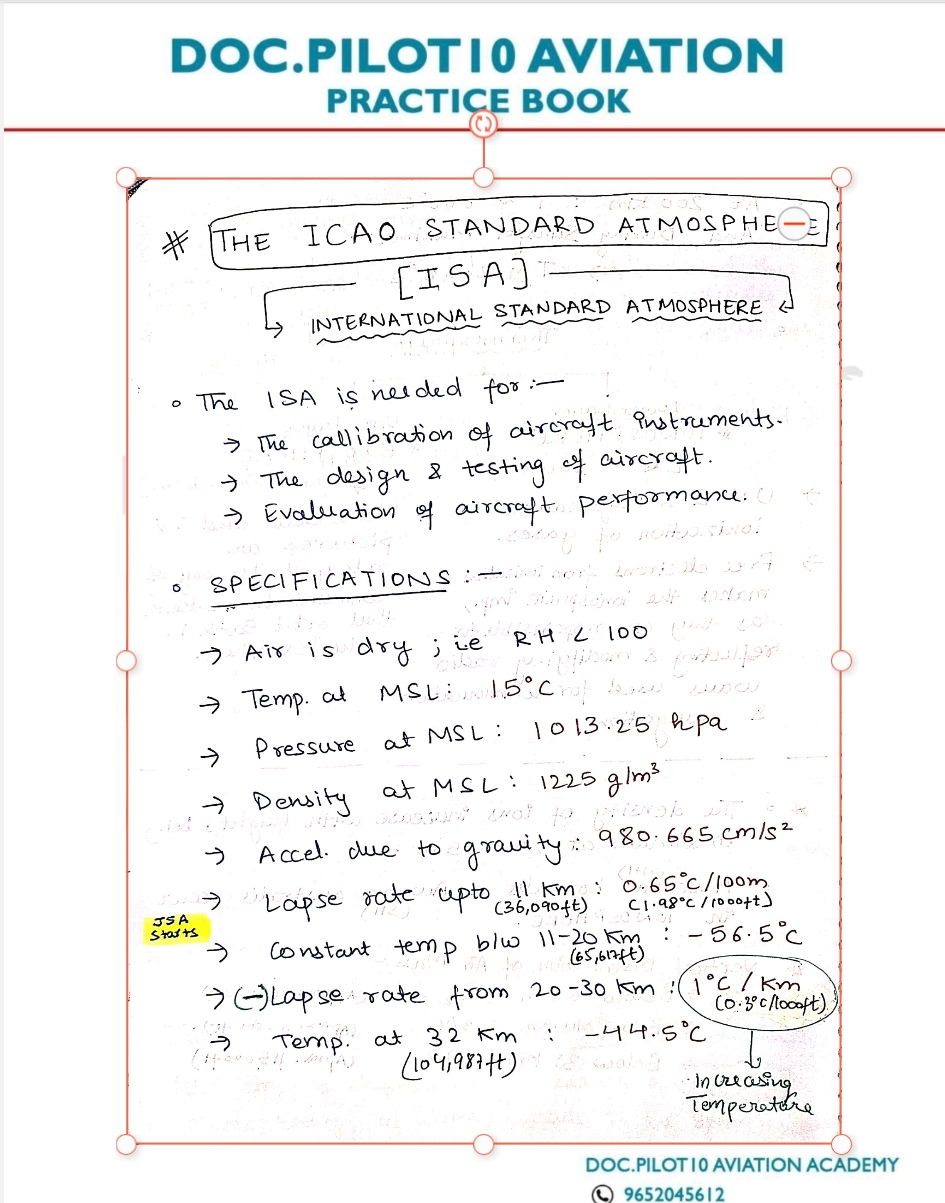 DOC.PILOT10 AVIATION
PRACTICE BOOK
# THE ICAO STANDARD ATMOSPHE E
[ISA]
INTERNATIONAL STANDARD ATMOSPHERE
The ISA is needed for :-
→ The callibration of aircraft instruments.
→ The design & testing of aircraft.
→ Evaluation of aircraft performance.
SPECIFICATIONS :-
→ Air is dry ; ie RH < 100
→ Temp. at MSL: 15°C
→ Pressure at MSL : 1013.25 hpa
→ Density at MSL : 1225 g/m³
→ Accel. due to gravity : 980.665 cm/s²
→ Lapse rate upto 11 Km : 0.65°C/100m
(36,090ft) (1.98°C/1000ft)
ISA
Starts
→ Constant temp b/w 11-20 Km : -56.5°C
(65,617ft)
→ (-) Lapse rate from 20-30 Km : 1°C / Km
(0.3°C/1000ft)
→ Temp. at 32 Km : -44.5°C
(104,987ft)
Increasing
Temperature
DOC.PILOT10 AVIATION ACADEMY
9652045612